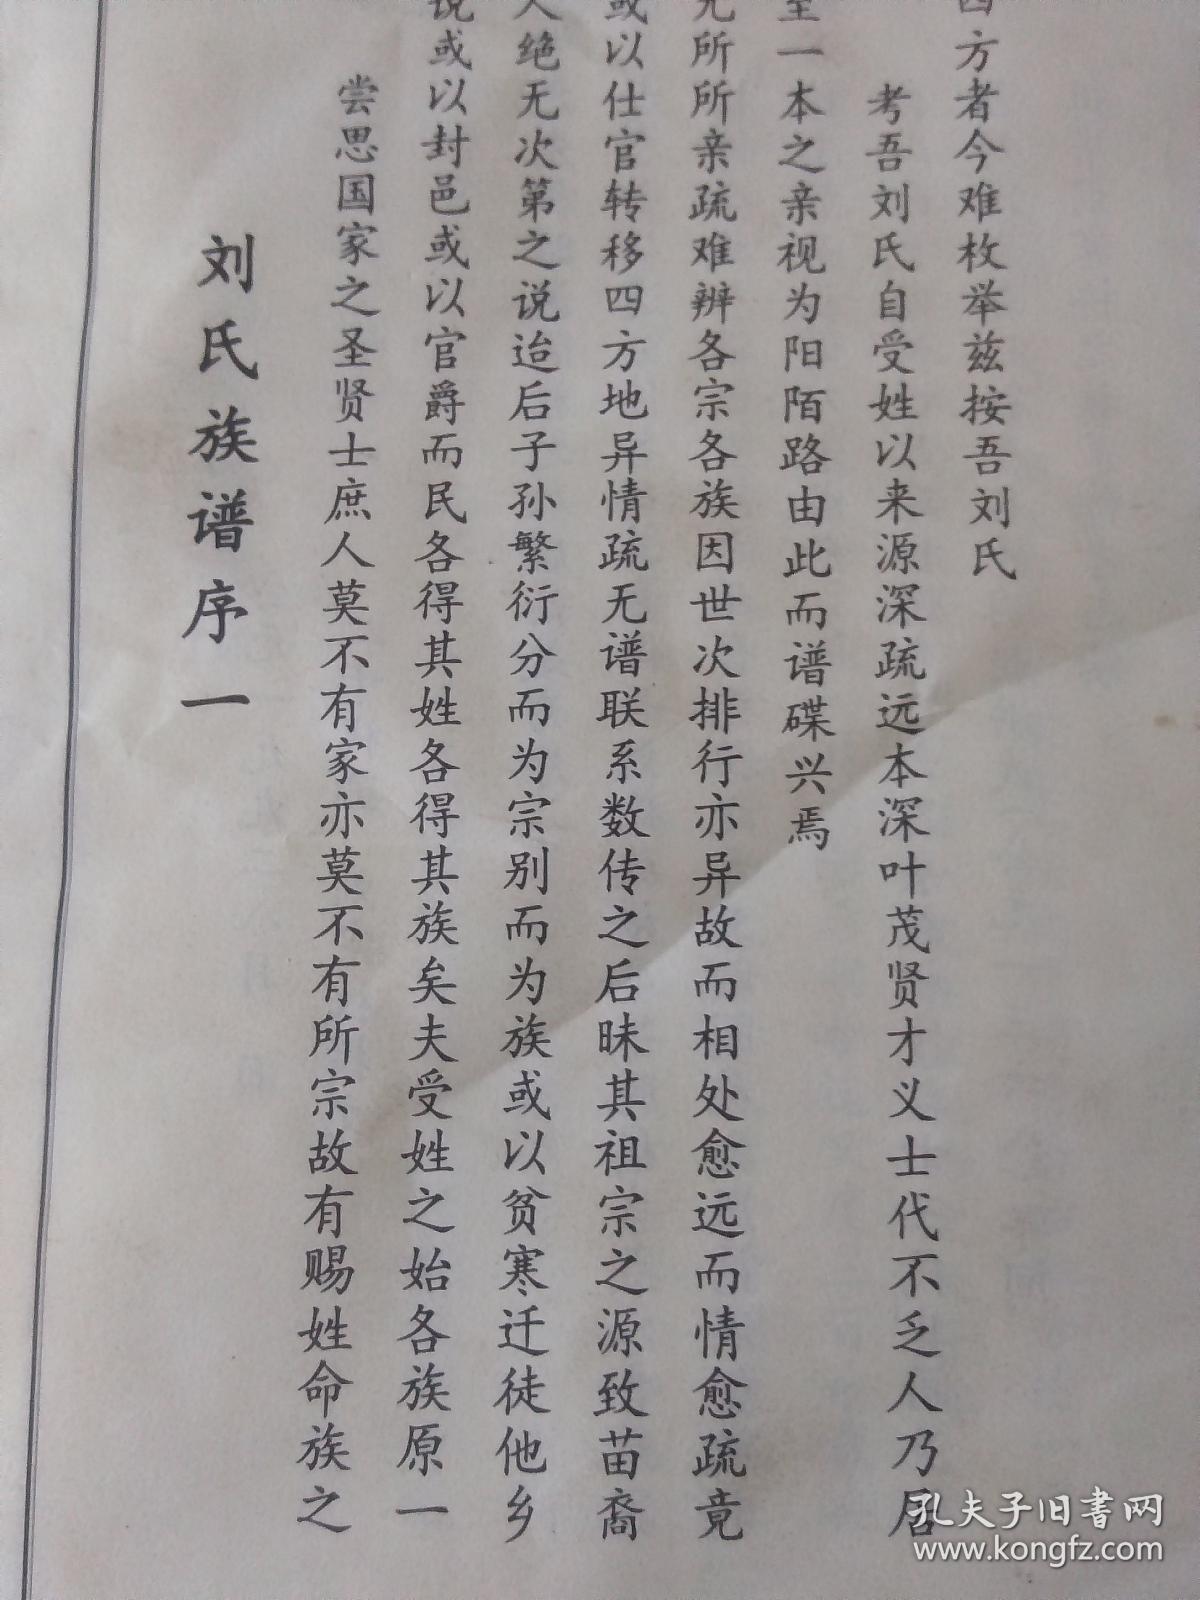 刘氏族谱序一
尝思国家之圣贤士庶人莫不有家亦莫不有所宗故有赐姓命族之
说或以封邑或以官爵而民各得其姓各得其族矣夫受姓之始各族原一
人绝无次第之说迨后子孙繁衍分而为宗别而为族或以贫寒迁徒他乡
或以仕官转移四方地异情疏无谱联系数传之后昧其祖宗之源致苗裔
无所所亲疏难辨各宗各族因世次排行亦异故而相处愈远而情愈疏竟
至一本之亲视为阳陌路由此而谱碟兴焉
考吾刘氏自受姓以来源深疏远本深叶茂贤才义士代不乏人乃居
四方者今难枚举兹按吾刘氏
孔夫子旧书网
www.kongfz.com